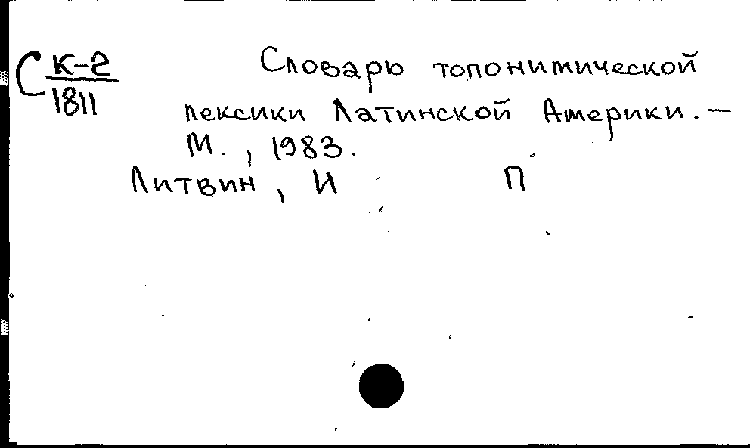 С К-2
1811
Словарь топонимической
лексики Латинской Америки. —
М., 1983.
Литвин, И П